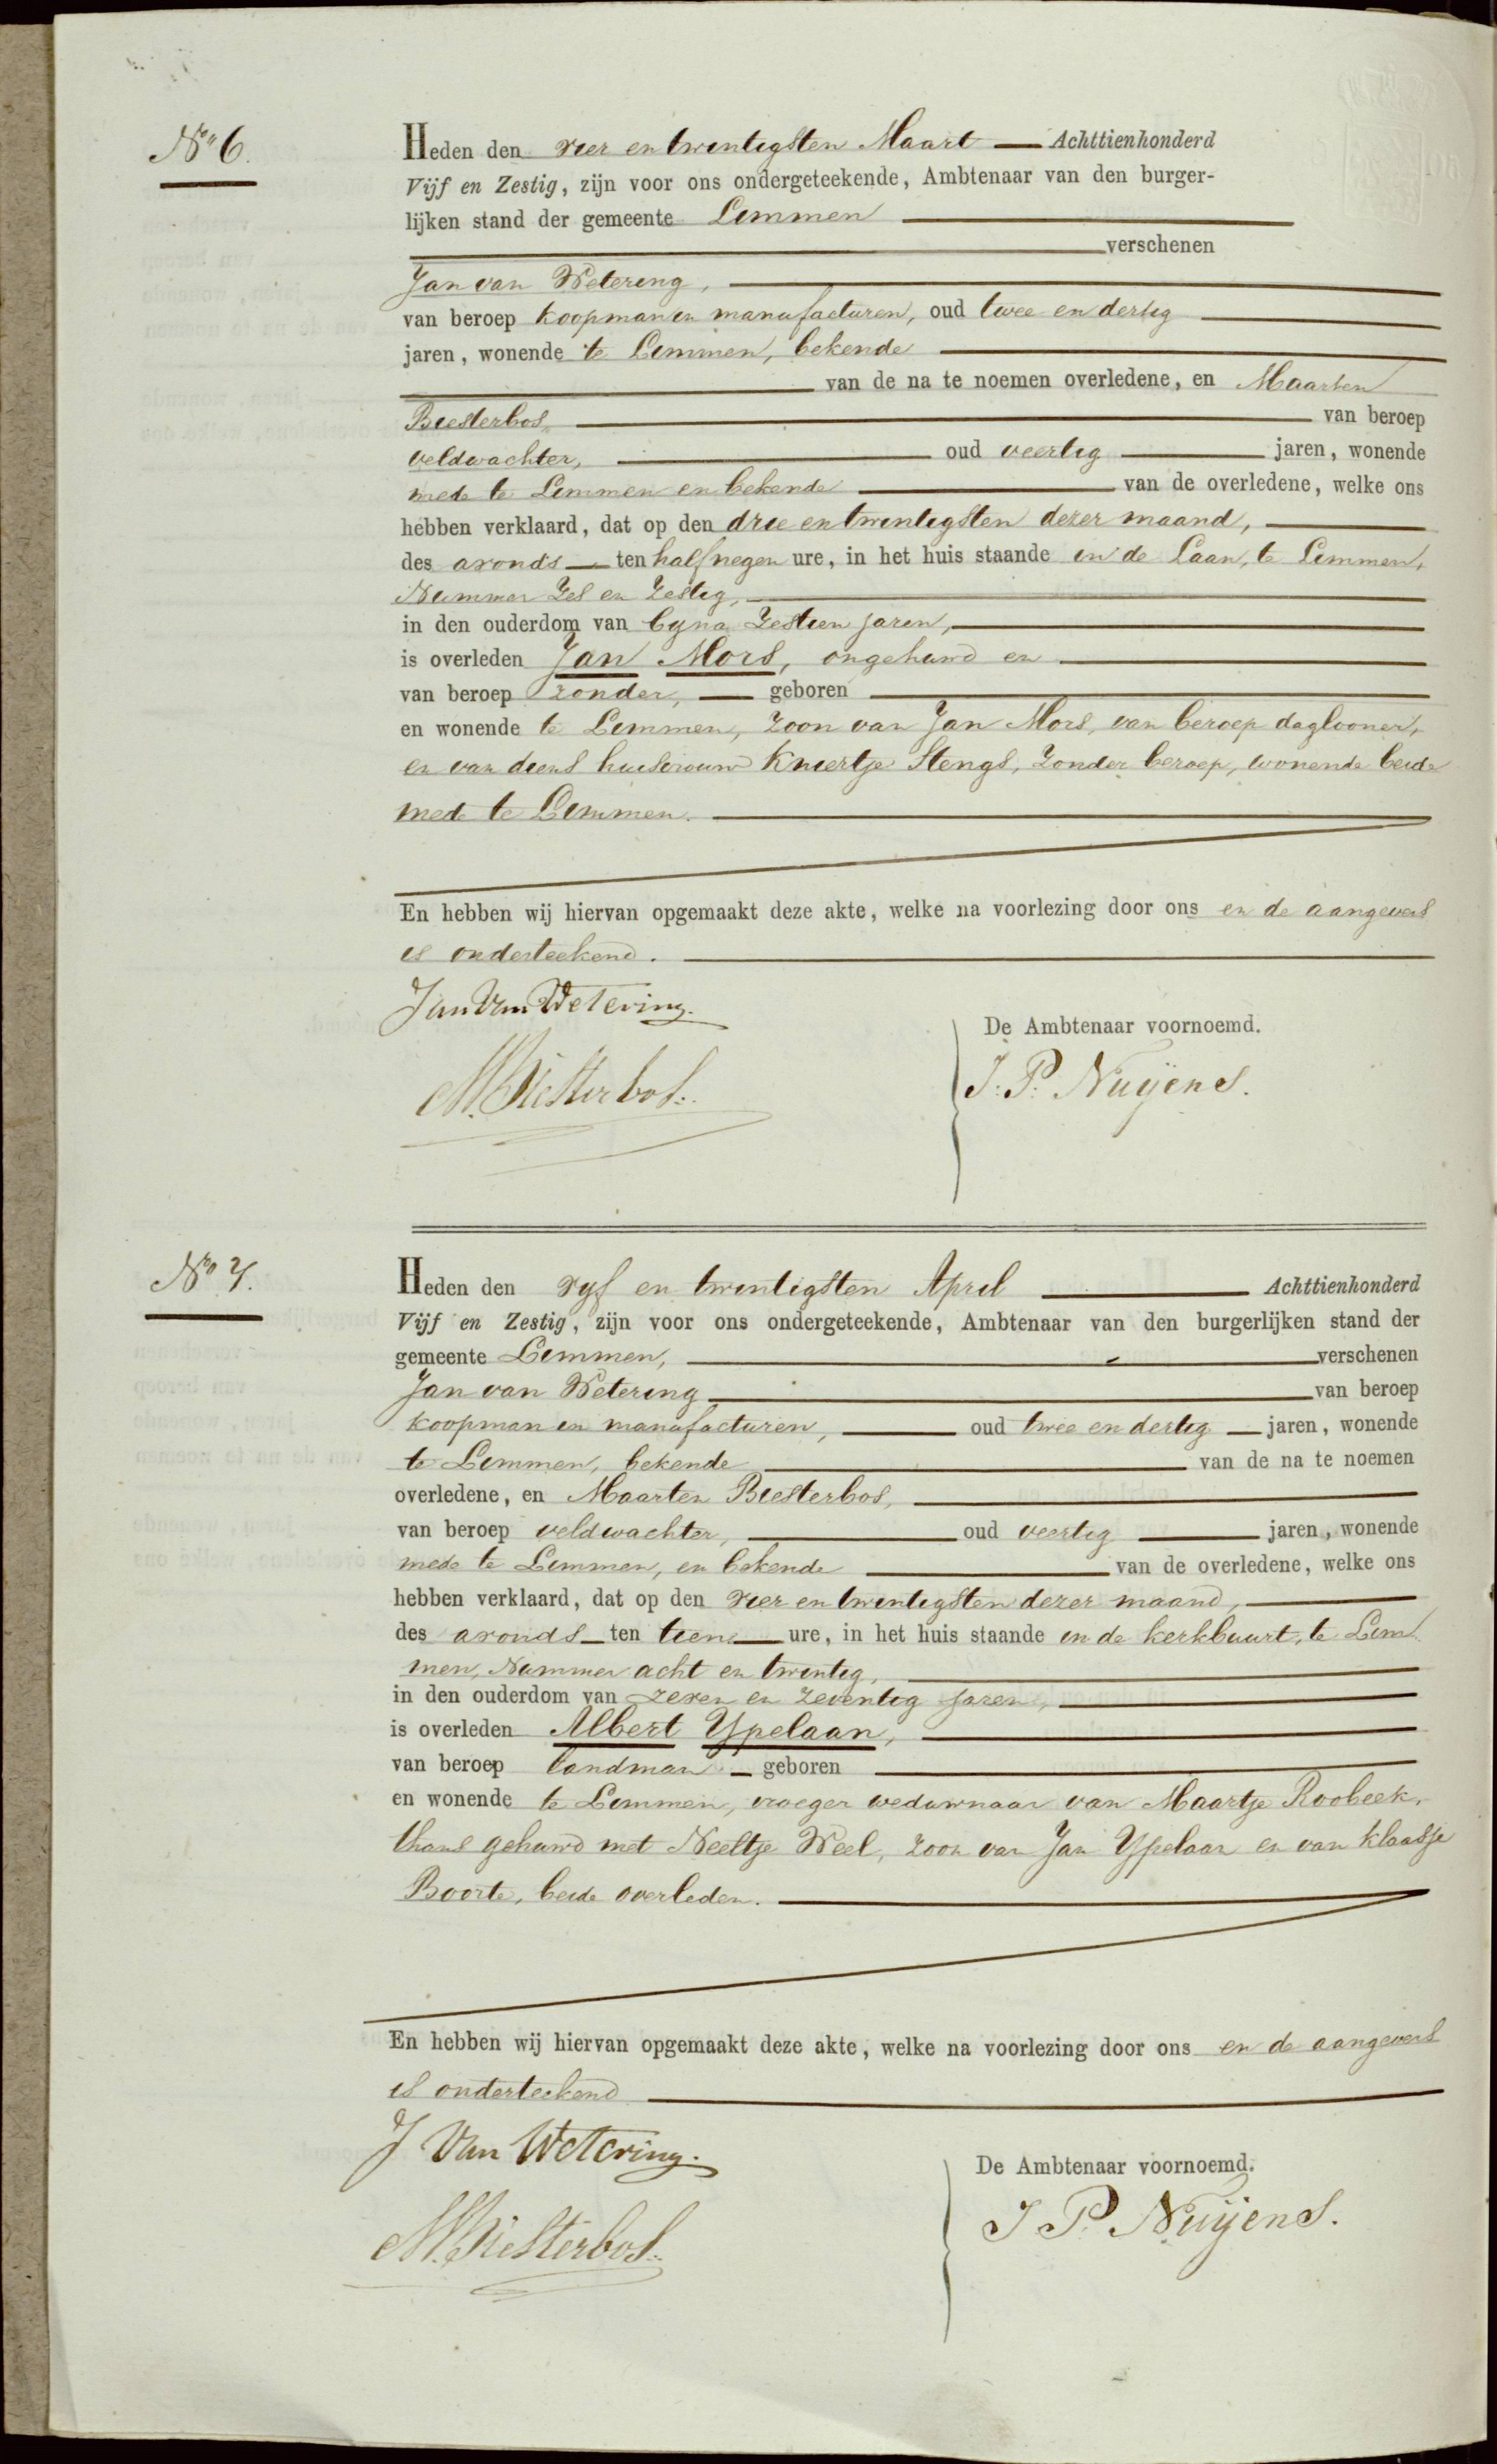 No 6.
Heden den vier en twintigsten Maart Achttienhonderd
Vijf en Zestig, zijn voor ons ondergeteekende, Ambtenaar van den burger-
lijken stand der gemeente Limmen
verschenen
Jan van Wetering,
van beroep koopman in manufacturen, oud twee en dertig
jaren, wonende te Limmen, bekende
van de na te noemen overledene, en Maarten
Biesterbos, van beroep
veldwachter, oud veertig jaren, wonende
mede te Limmen en bekende van de overledene, welke ons
hebben verklaard, dat op den drie en twintigsten dezer maand,
des avonds ten half negen ure, in het huis staande in de Laan, te Limmen,
Nummer Zes en Zestig,
in den ouderdom van byna Zestien jaren,
is overleden Jan Mors, ongehuwd en
van beroep zonder, geboren
en wonende te Limmen, zoon van Jan Mors, van beroep daglooner,
en van diens huisvrouw Kniertje Stengs, Zonder beroep, wonende beide
mede te Limmen.
En hebben wij hiervan opgemaakt deze akte, welke na voorlezing door ons en de aangevers
is onderteekend.
Jan van Wetering.
M. Biesterbos.
De Ambtenaar voornoemd.
J. P. Nuijens.
No 7.
Heden den vyf en twintigsten April Achttienhonderd
Vijf en Zestig, zijn voor ons ondergeteekende, Ambtenaar van den burgerlijken stand der
gemeente Limmen, verschenen
Jan van Wetering van beroep
koopman in manufacturen, oud twee en dertig jaren, wonende
te Limmen, bekende van de na te noemen
overledene, en Maarten Biesterbos,
van beroep veldwachter, oud veertig jaren, wonende
mede te Limmen, en bekende van de overledene, welke ons
hebben verklaard, dat op den vier en twintigsten dezer maand,
des avonds ten tien ure, in het huis staande in de kerkbuurt, te Lim
men, Nummer acht en twintig,
in den ouderdom van zeven en zeventig jaren,
is overleden Albert Ypelaan,
van beroep landman geboren
en wonende te Limmen, vroeger weduwnaar van Maartje Roobeek,
thans gehuwd met Neeltje Weel, zoon van Jan Ypelaan en van Klaasje
Boorte, beide overleden.
En hebben wij hiervan opgemaakt deze akte, welke na voorlezing door ons en de aangevers
is onderteekend
J van Wetering.
M. Biesterbos.
De Ambtenaar voornoemd.
J P. Nuijens.